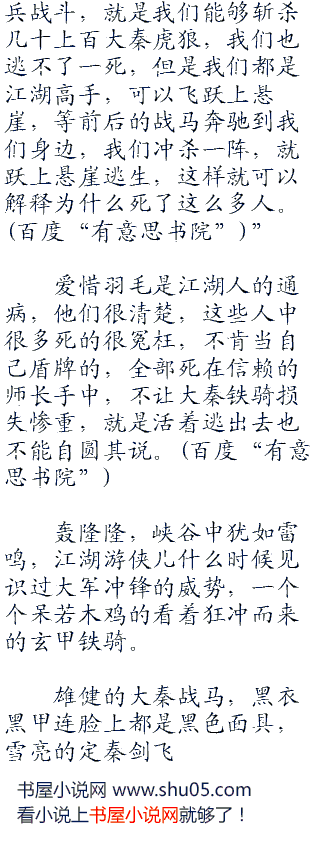 兵战斗，就是我们能够斩杀
几十上百大秦虎狼，我们也
逃不了一死，但是我们都是
江湖高手，可以飞跃上悬
崖，等前后的战马奔驰到我
们身边，我们冲杀一阵，就
跃上悬崖逃生，这样就可以
解释为什么死了这么多人。
(百度“有意思书院”)”
爱惜羽毛是江湖人的通
病，他们很清楚，这些人中
很多死的很冤枉，不肯当自
己盾牌的，全部死在信赖的
师长手中，不让大秦铁骑损
失惨重，就是活着逃出去也
不能自圆其说。(百度“有意
思书院”)
轰隆隆，峡谷中犹如雷
鸣，江湖游侠儿什么时候见
识过大军冲锋的威势，一个
个呆若木鸡的看着狂冲而来
的玄甲铁骑。
雄健的大秦战马，黑衣
黑甲连脸上都是黑色面具，
雪亮的定秦剑飞
书屋小说网 www.shu05.com
看小说上书屋小说网就够了！